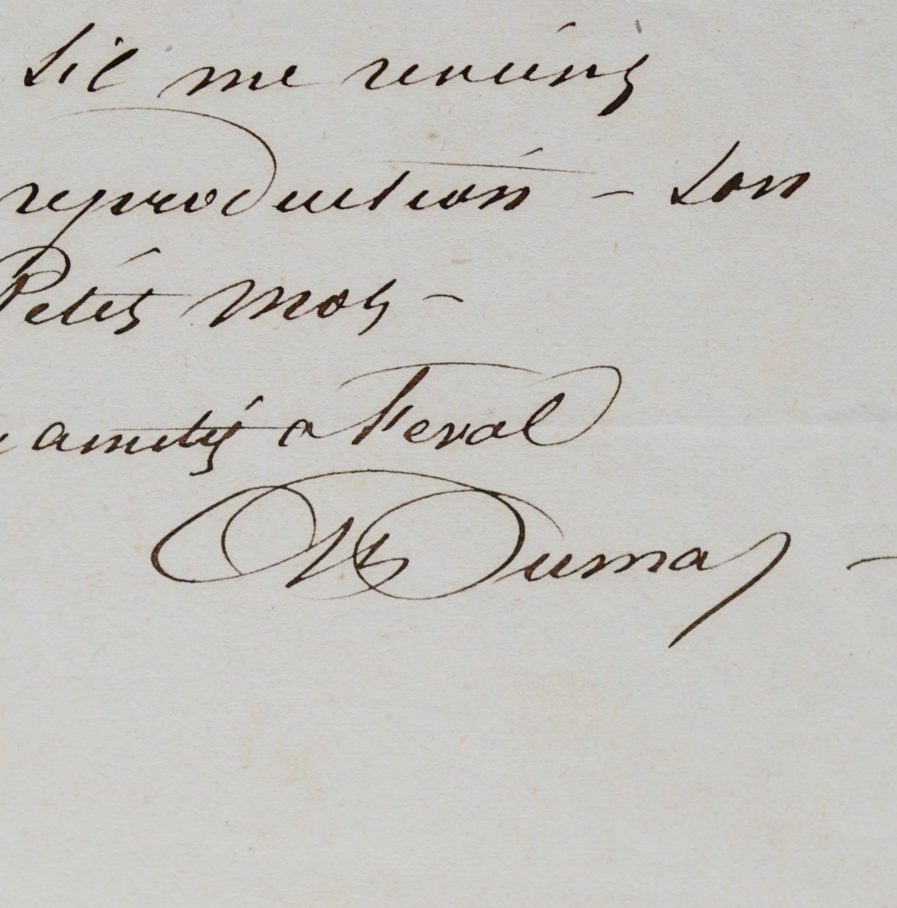 Sil me revient
reproduction – Son
Petits mots –
amitiés a Feval
Al Dumas –